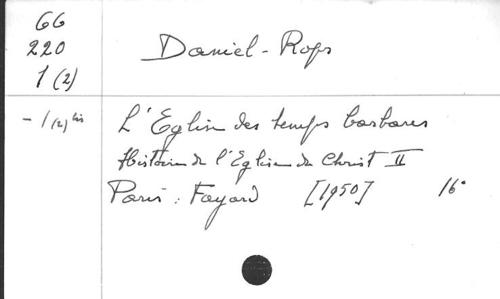 GG
220
1 (2)
Daniel-Rops
- 1 (2) bis
L'Eglise des temps barbares
Histoire de l'Eglise du Christ II
Paris : Fayard [1950] 16°